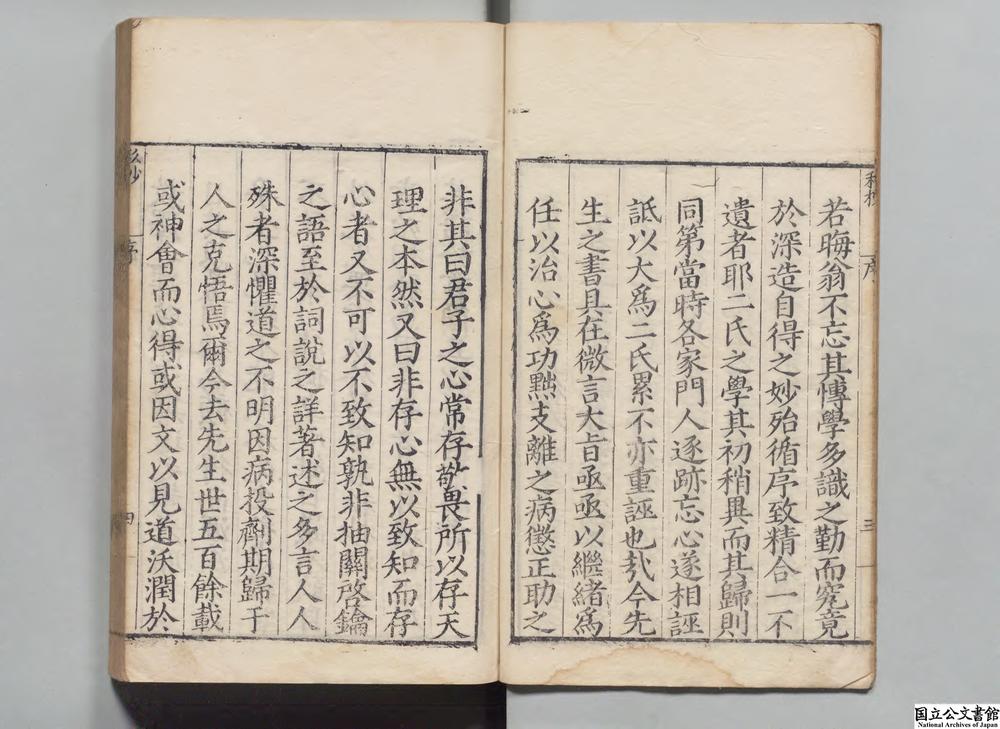 若晦翁不忘其慱學多識之勤而究竟
於深造自得之妙殆循序致精合一不
遺者耶二氏之學其初稍異而其歸則
同第當時各家門人逐跡忘心遂相誣
詆以大爲二氏累不亦重誣也㢤今先
生之書具在微言大旨亟亟以繼緒爲
任以治心爲功黜支離之病懲正助之
三
非其曰君子之心常存敬畏所以存天
理之本然又曰非存心無以致知而存
心者又不可以不致知孰非抽關啓鑰
之語至於詞說之詳著述之多言人人
殊者深懼道之不明因病投劑期歸于
人之克悟焉爾今去先生世五百餘載
或神會而心得或因文以見道沃潤於
序
四
国立公文書館
National Archives of Japan